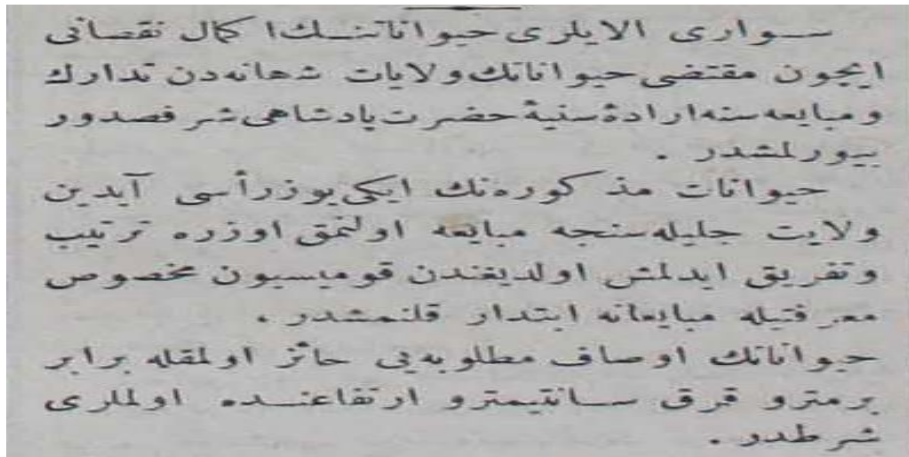 سواری الایلری حیواناتنك اكمال نقصانی
ایچون مقتضی حیواناتك ولایات شهانه‌دن تدارك
و مبایعه‌سنه ارادۀ سنیۀ حضرت پادشاهی شرفصدور
بیورلمشدر .
حیوانات مذكوره‌نك ایكی‌یوز رأسی آیدین
ولایت جلیله‌سنجه مبایعه اولنمق اوزره ترتیب
وتفریق ایدلمش اولدیغندن قومیسیون مخصوص
معرفتیله مبایعاته ابتدار قلنمشدر .
حیواناتك اوصاف مطلوبه‌یی حائز اولمقله برابر
برمترو قرق سانتیمترو ارتفاعنده اولملری
شرطدر .